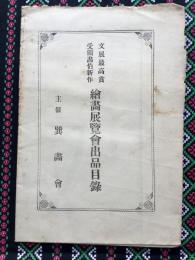 文展最高賞
受領畵伯新作
繪畵展覽會出品目錄
主催 巽畵會